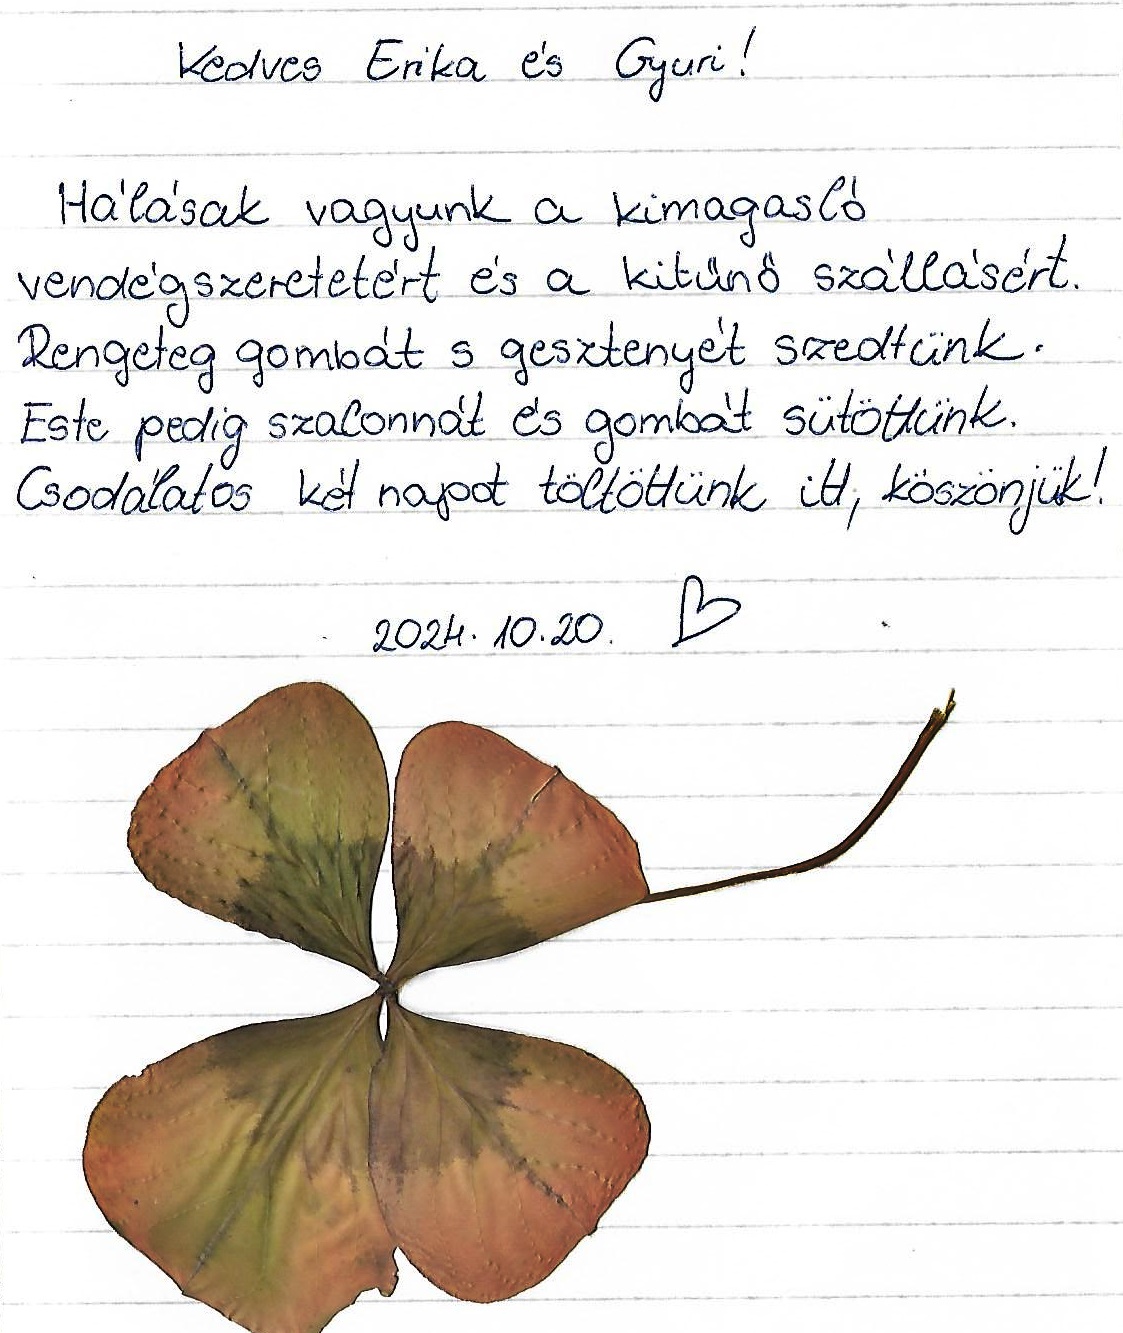 Kedves Erika és Gyuri!
Hálásak vagyunk a kimagasló
vendégszeretetért és a kitűnő szállásért.
Rengeteg gombát s gesztenyét szedtünk.
Este pedig szalonnát és gombát sütöttünk.
Csodálatos két napot töltöttünk itt, köszönjük!
2024. 10.20.